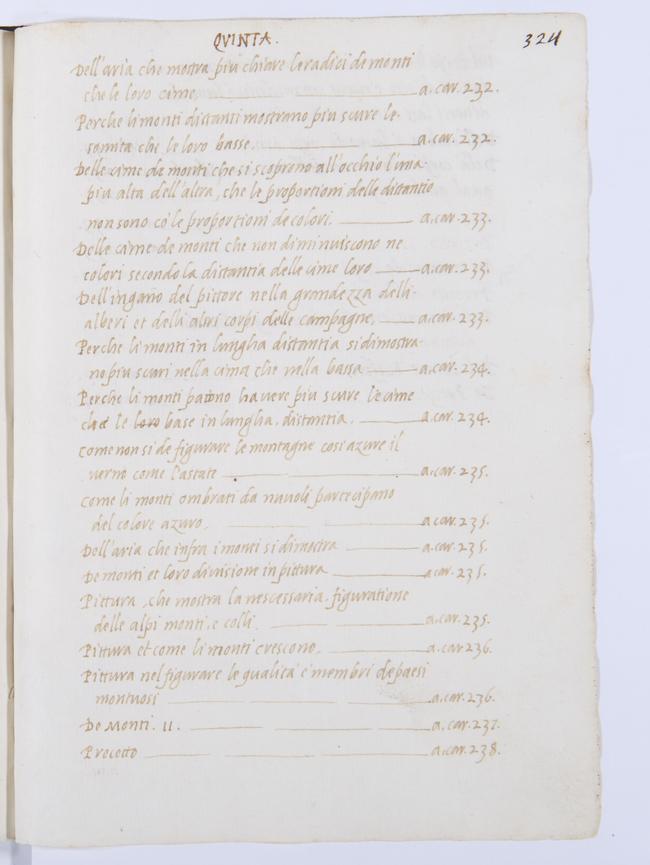 QVINTA. 324
Dell'aria che mostra piu chiare le radici de monti
che le loro cime. a. car. 232.
Perche li monti distanti mostrano piu scure le
somita che le loro basse. a. car. 232.
Delle cime de monti che si scoprono all'occhio l'una
piu alta dell'altra, che le proportioni delle distantie
non sono co' le proportioni de colori. a. car. 233.
Delle cime de monti che non diminuiscono ne
colori secondo la distantia delle cime loro a. car. 233.
Dell'ingano del pittore nella grandezza delli
alberi et delli altri corpi delle campagne. a. car. 233.
Perche li monti in lungha distantia si dimostra
no piu scuri nella cima che nella bassa a. car. 234.
Perche li monti paiono havere piu scure le cime
che le loro base in lungha. distantia. a. car. 234.
Come non si de figurare le montagne cosi azure il
verno come l'astate a. car. 235.
Come li monti ombrati da nuvoli partecipano
del colore azuro. a. car. 235.
Dell'aria che infra i monti si dimostra a. car. 235.
De monti et loro divisione in pittura a. car. 235.
Pittura, che mostra la nescessaria. figuratione
delle alpi monti, e colli. a. car. 235.
Pittura et come li monti crescono. a. car 236.
Pittura nel figurare le qualita e membri de paesi
montuosi a. car. 236.
De Monti. II. a. car. 237.
Precetto a. car. 238.